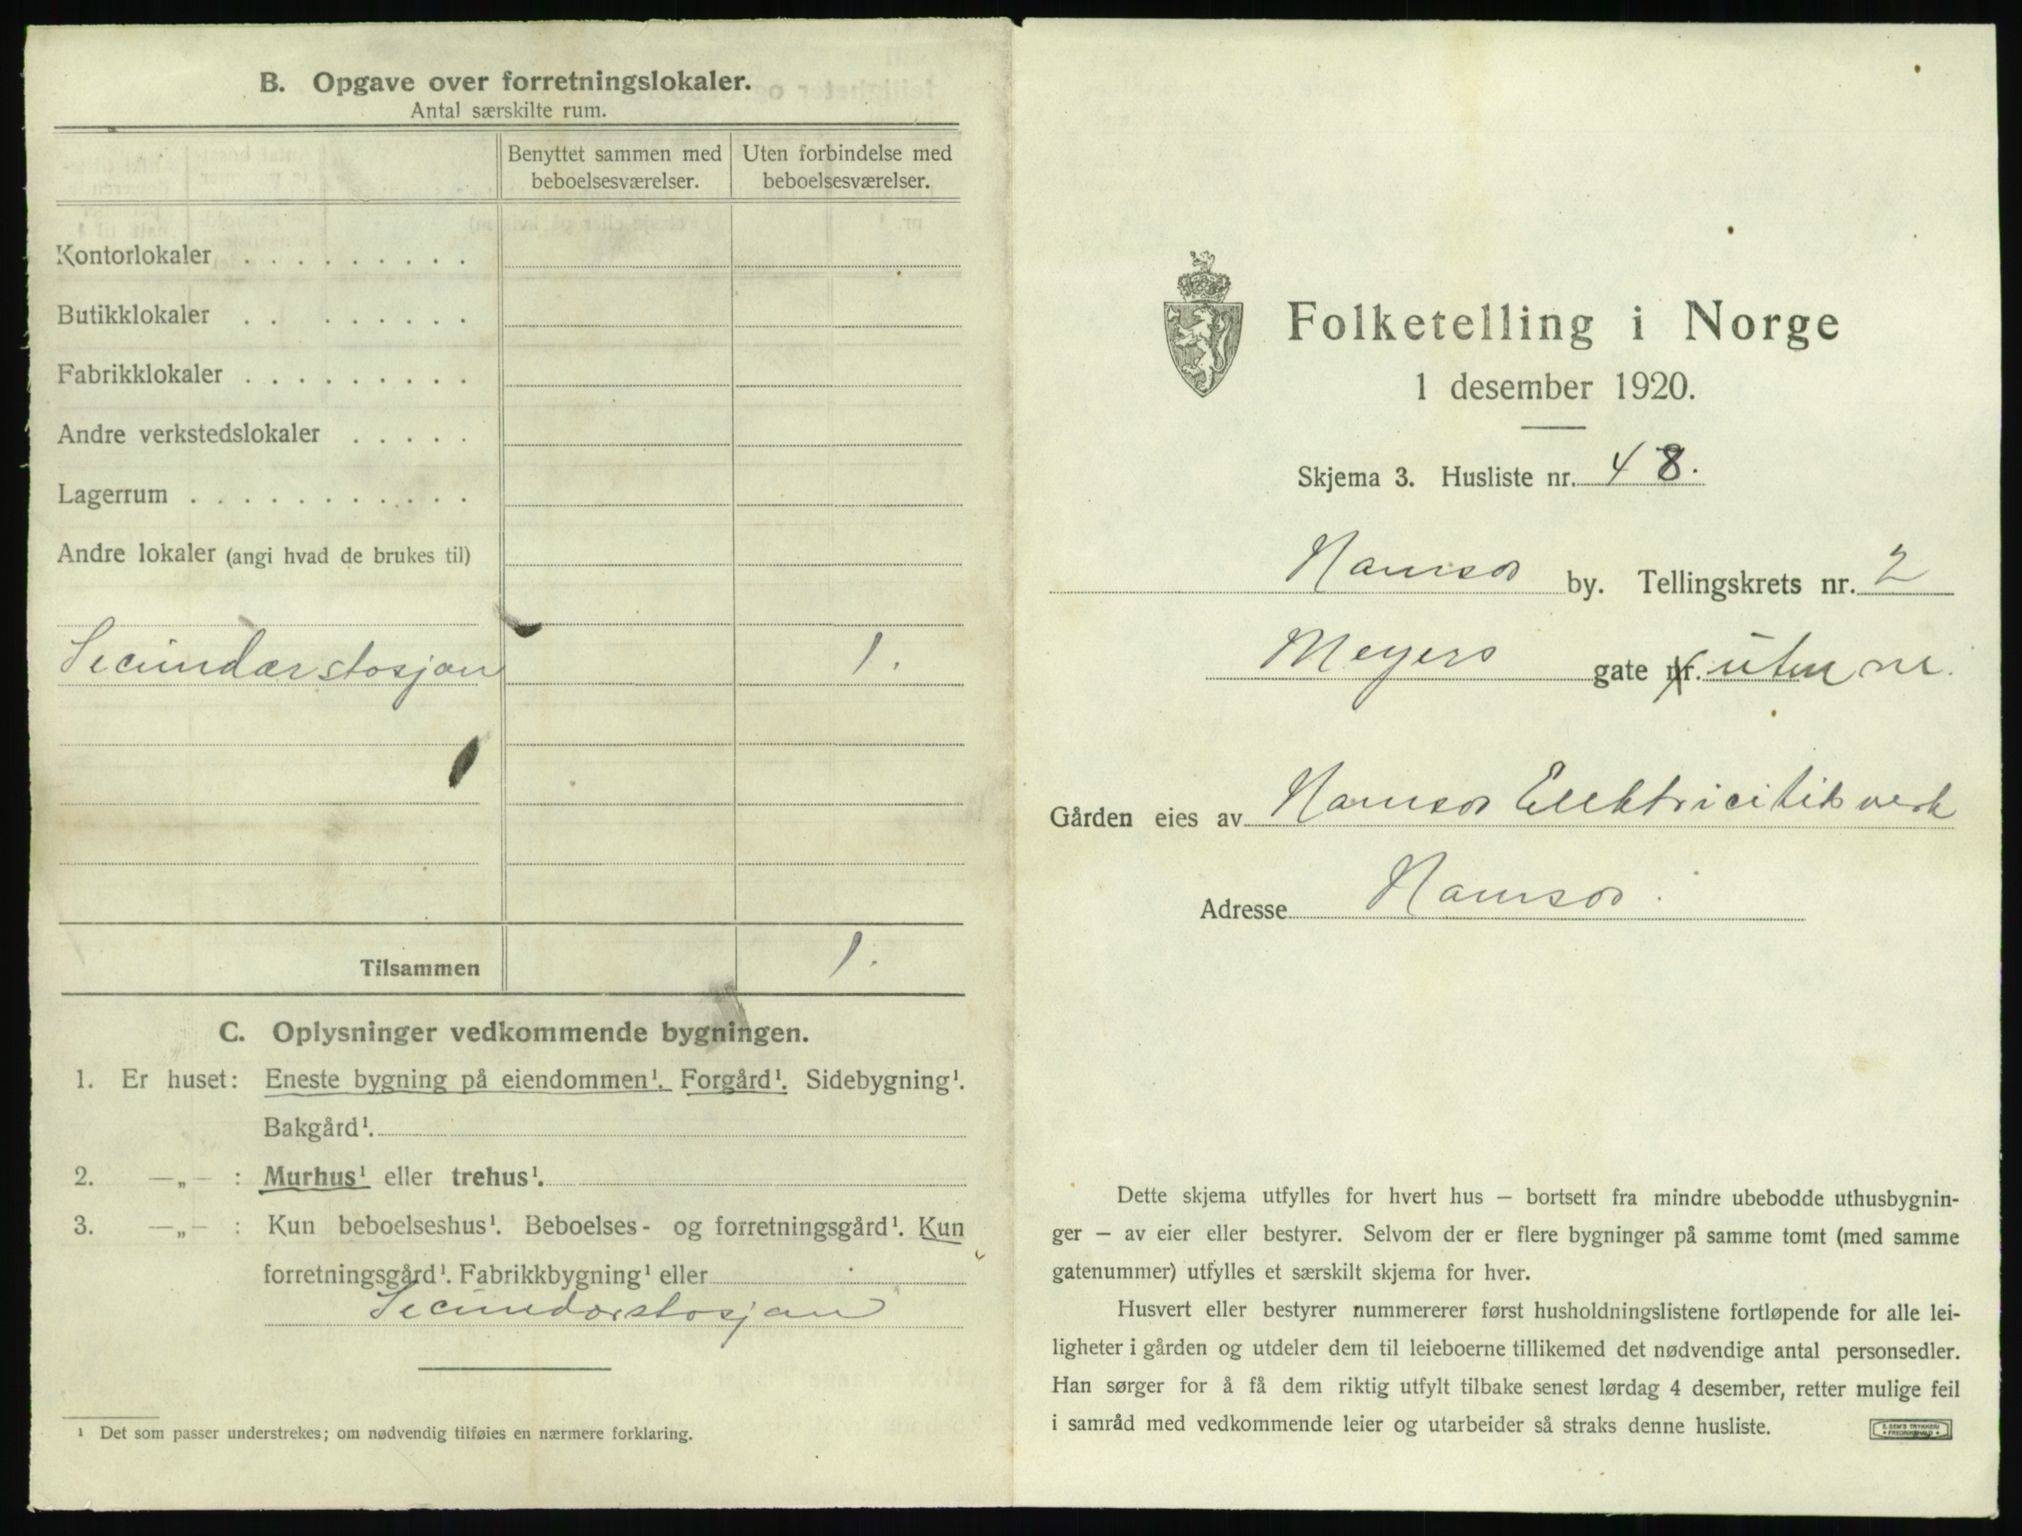 B. Opgave over forretningslokaler.
Antal særskilte rum.
Benyttet sammen med beboelsesværelser.
Uten forbindelse med beboelsesværelser.
Kontorlokaler . . . . . . . . .
Butikklokaler . . . . . . . .
Fabrikklokaler . . . . . . . . .
Andre verkstedslokaler . . . . .
Lagerrum . . . . . . . . . . . .
Andre lokaler (angi hvad de brukes til)
Secundærstasjon 1.
Tilsammen 1.
C. Oplysninger vedkommende bygningen.
1. Er huset: Eneste bygning på eiendommen¹. Forgård¹. Sidebygning¹.
Bakgård¹.
2. —„— : Murhus¹ eller trehus¹.
3. —„— : Kun beboelseshus¹. Beboelses- og forretningsgård¹. Kun
forretningsgård¹. Fabrikkbygning¹ eller
Secundærstasjon
¹ Det som passer understrekes; om nødvendig tilføies en nærmere forklaring.
Folketelling i Norge
1 desember 1920.
Skjema 3. Husliste nr. 48.
Namsos by. Tellingskrets nr. 2
Meyers gate nr. uten nr.
Gården eies av Namsos Elektricitetsverk
Adresse Namsos.
Dette skjema utfylles for hvert hus — bortsett fra mindre ubebodde uthusbygnin-
ger — av eier eller bestyrer. Selvom der er flere bygninger på samme tomt (med samme
gatenummer) utfylles et særskilt skjema for hver.
Husvert eller bestyrer nummererer først husholdningslistene fortløpende for alle lei-
ligheter i gården og utdeler dem til leieboerne tillikemed det nødvendige antal personsedler.
Han sørger for å få dem riktig utfylt tilbake senest lørdag 4 desember, retter mulige feil
i samråd med vedkommende leier og utarbeider så straks denne husliste.
E. SEM'S TRYKKERI
FREDRIKSHALD